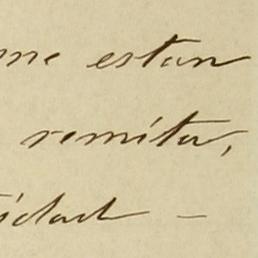 me estan
remita,
idad —